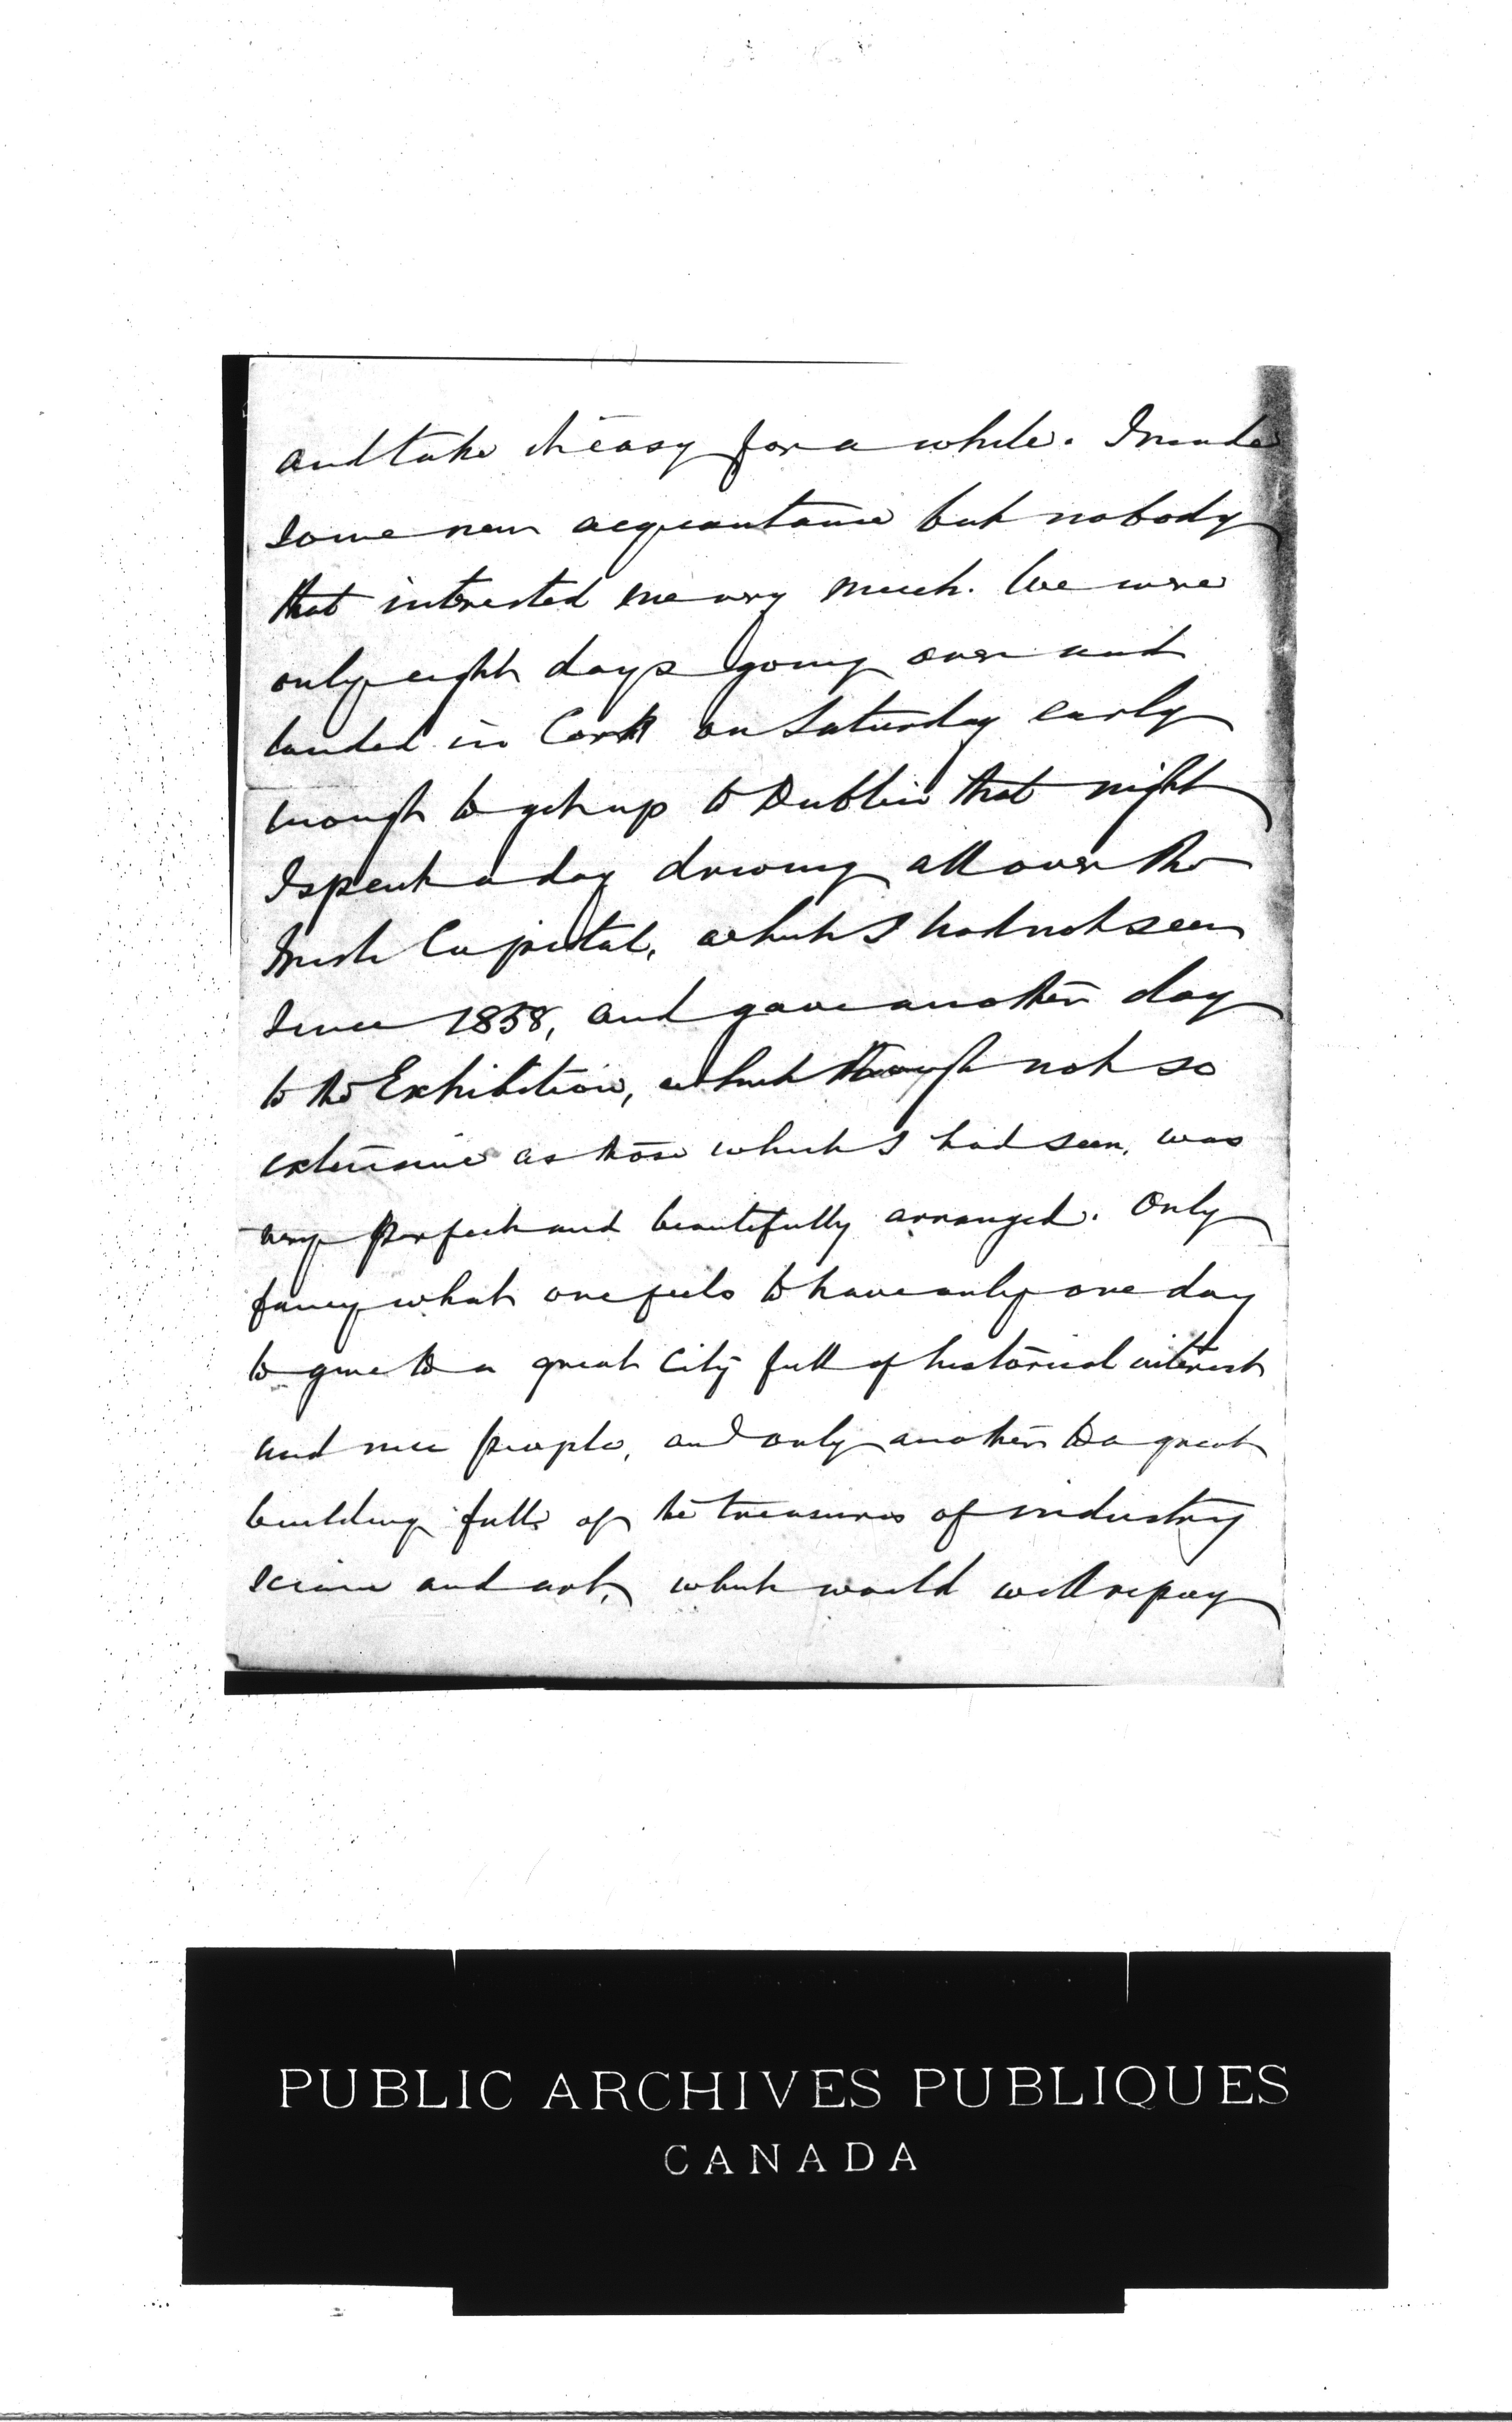 and take it easy for a while. I made
some new acquaintance but nobody
that interested me very much. We were
only eight days going over and
landed in Cork on Saturday early
enough to get up to Dublin that night
I spent a day driving all over the
Irish Capital, which I had not seen
since 1858, and gave another day
to the Exhibition, which though not so
extensive as those which I had seen, was
very perfect and beautifully arranged. Only
fancy what one feels to have only one day
to give to a great City full of historical interest
and nice people, and only another to a great
building full of the treasures of industry
science and art, which would well repay
PUBLIC ARCHIVES PUBLIQUES
CANADA